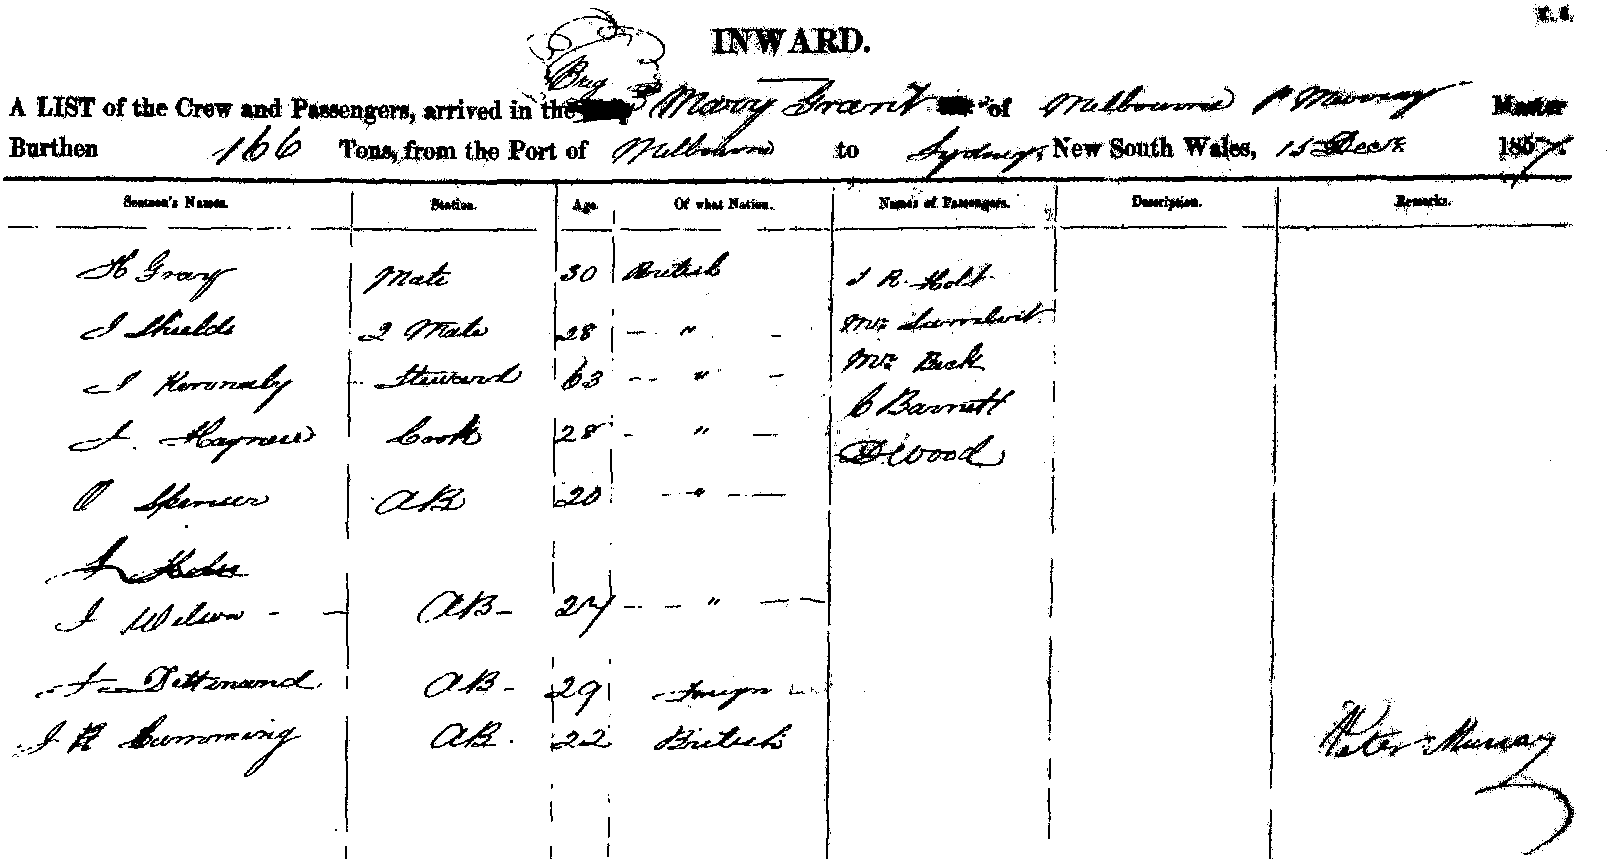 INWARD.
Brig
A LIST of the Crew and Passengers, arrived in the Mary Grant of Melbourne P Murray Master
Burthen 166 Tons, from the Port of Melbourne to Sydney, New South Wales, 15 Decr 1857.
Seamen's Names. Station. Age. Of what Nation. Names of Passengers. Description. Remarks.
H Gray Mate 30 British J R. Holt
J Shields 2 Mate 28 — " — Mr
J Steward 63 -- " — Mr Beck
J. Cook 28 - " — C Barnett
O Spencer AB 20 — " — — D Wood
J Wilson - — AB — 27 — — " — —
F Dittmand AB - 29 Foreign
J R Cumming AB. 22 British Peter Murray